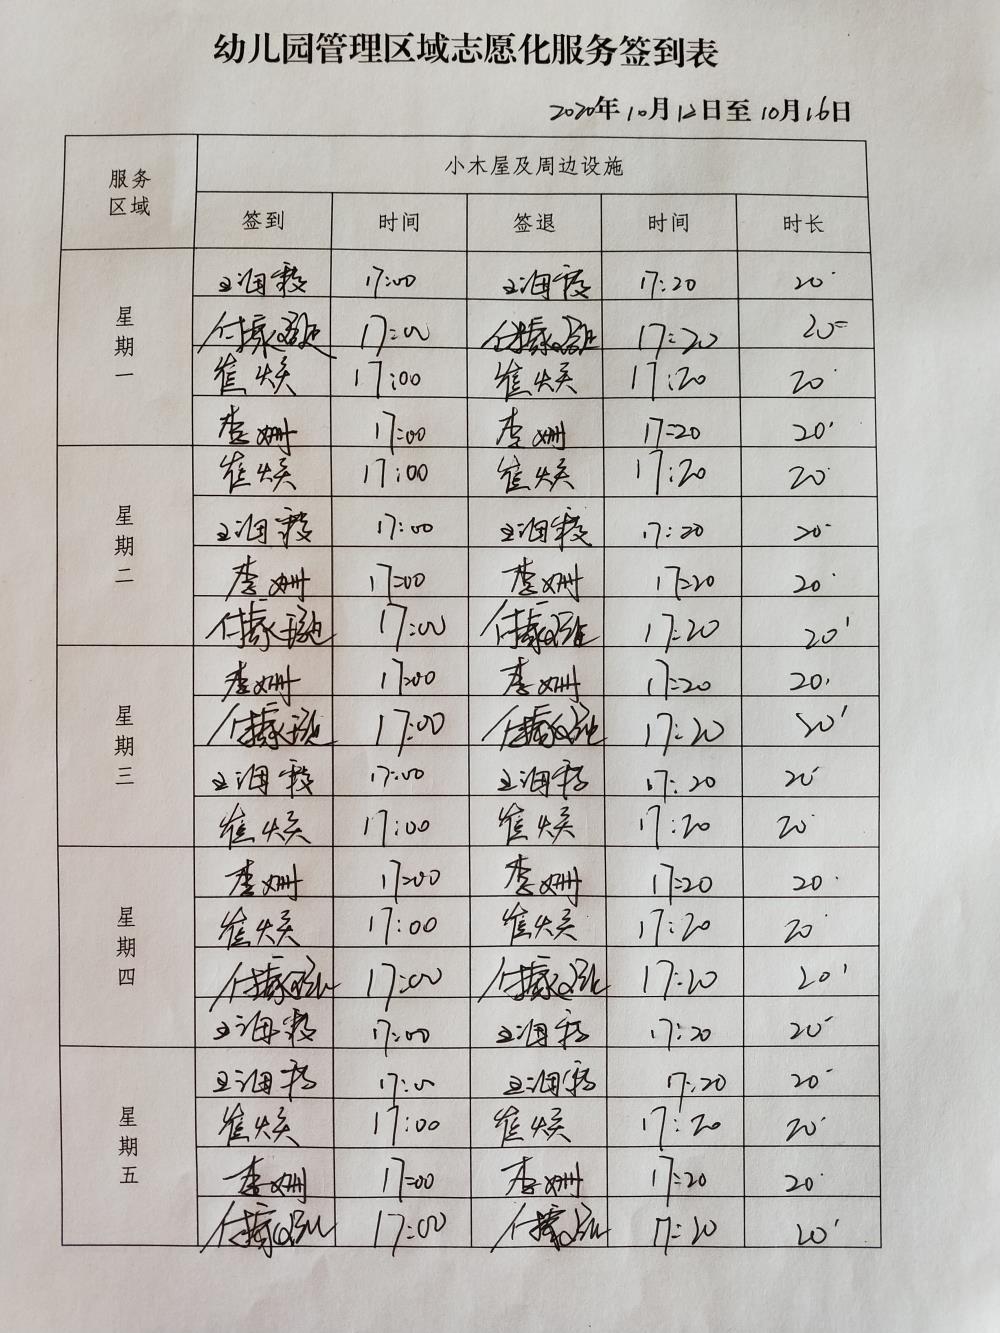 幼儿园管理区域志愿化服务签到表
2020年10月12日至10月16日
服务区域 小木屋及周边设施
签到 时间 签退 时间 时长
星期一
王海霞 17:00 王海霞 17:20 20'
17:00 17:20 20'
崔焕 17:00 崔焕 17:20 20'
李姗 17:00 李姗 17:20 20'
星期二
崔焕 17:00 崔焕 17:20 20'
王海霞 17:00 王海霞 17:20 20'
李姗 17:00 李姗 17:20 20'
17:00 17:20 20'
星期三
李姗 17:00 李姗 17:20 20'
17:00 17:20 20'
王海霞 17:00 王海霞 17:20 20'
崔焕 17:00 崔焕 17:20 20'
星期四
李姗 17:00 李姗 17:20 20'
崔焕 17:00 崔焕 17:20 20'
17:00 17:20 20'
王海霞 17:00 王海霞 17:20 20'
星期五
王海霞 17:00 王海霞 17:20 20'
崔焕 17:00 崔焕 17:20 20'
李姗 17:00 李姗 17:20 20'
17:00 17:20 20'